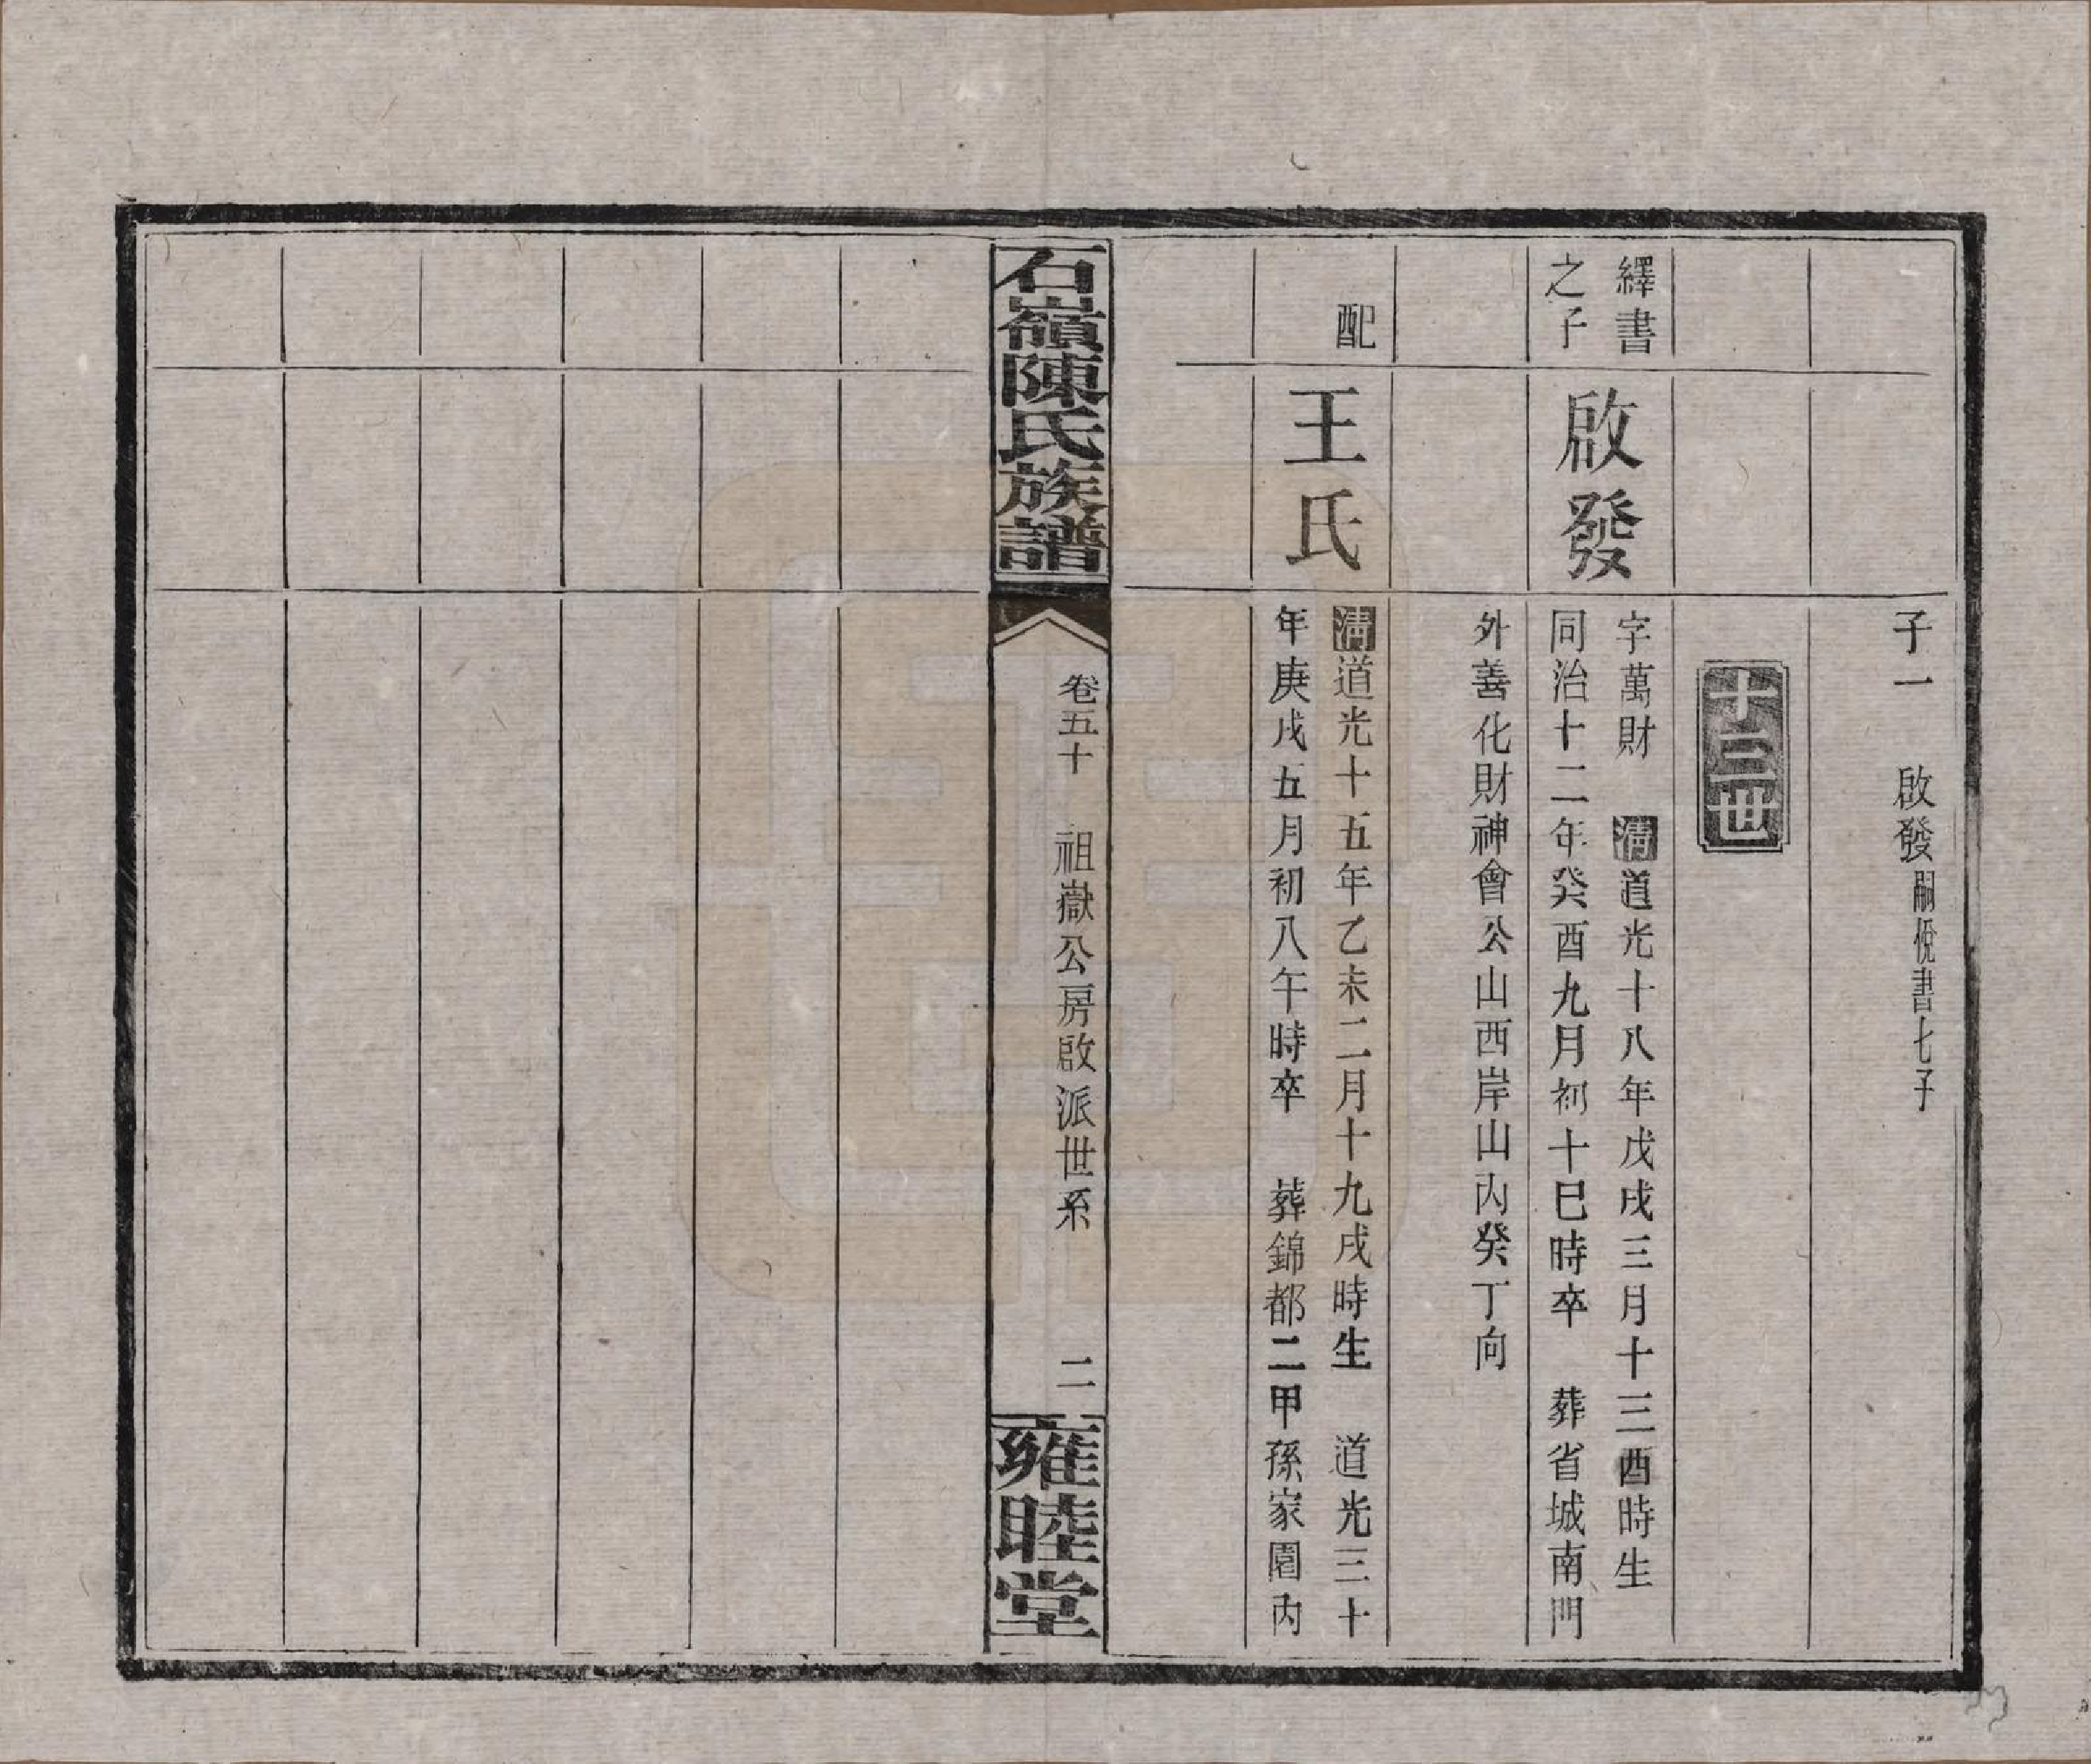 子一　啟發嗣悅書七子
十三世
繹書
之子
啟發
字萬財　清道光十八年戊戌三月十三酉時生
同治十二年癸酉九月初十巳時卒　葬省城南門
外善化財神會公山西岸山內癸丁向
配
王氏
清道光十五年乙未二月十九戌時生　道光三十
年庚戌五月初八午時卒　葬錦都二甲孫家園內
石嶺陳氏族譜
卷五十　祖嶽公房啟派世系
二
雍睦堂